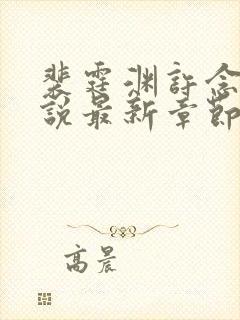 裴霆渊許念
說最新章節
高晨